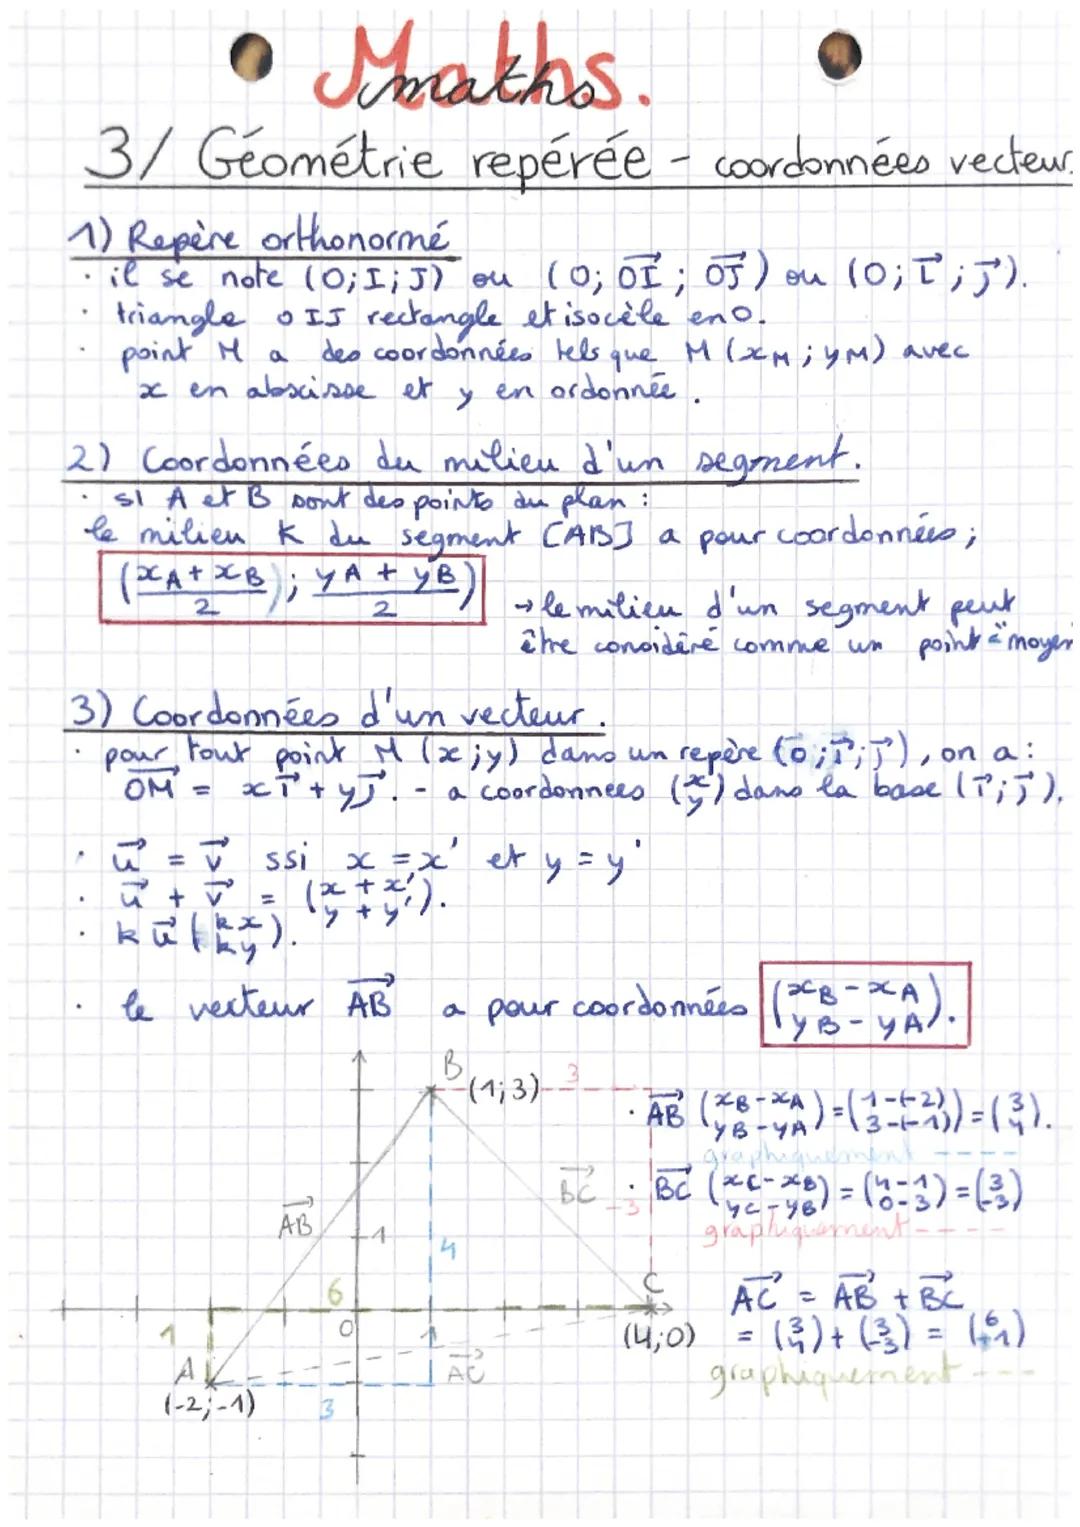 Maths.
maths
3/ Géométrie repérée - coordonnées vecteur.
1) Repère orthonormé
· il se note (O;I;J) ou (O; \vec{OI}; \vec{OJ}) ou (O; \vec{i}; \vec{j}).
· triangle OIJ rectangle et isocèle en O.
· point M a des coordonnées tels que M (xM ; yM) avec
x en abscisse et y en ordonnée.
2) Coordonnées du milieu d'un segment.
· si A et B sont des points du plan :
le milieu K du segment [AB] a pour coordonnées ;
((xA + xB)/2 ); (yA + yB)/2)
→ le milieu d'un segment peut
être considéré comme un point "moyen
3) Coordonnées d'un vecteur.
· pour tout point M (x;y) dans un repère (\vec{o}; \vec{i}; \vec{j}), on a :
\vec{OM} = x\vec{i} + y\vec{j}. - a coordonnees (x y) dans la base (\vec{i}; \vec{j}).
· \vec{u} = \vec{v} ssi x = x' et y = y'
· \vec{u} + \vec{v} = (x + x' y + y').
· k\vec{u} (kx ky).
· le vecteur \vec{AB} a pour coordonnées (xB - xA yB - yA).
B (1;3) 3
· \vec{AB} (xB-xA yB-yA) = (1-(-2) 3-(-1)) = (3 4).
graphiquement ----
· \vec{BC} (xC-xB yC-yB) = (4-1 0-3) = (3 -3)
graphiquement ----
\vec{AB} \vec{BC} -3
1 4
6 C
\vec{AC} = \vec{AB} + \vec{BC}
1 0 1 (4;0)
= (3 4) + (3 -3) = (6 +1)
A \vec{AC}
graphiquement ---
(-2;-1) 3